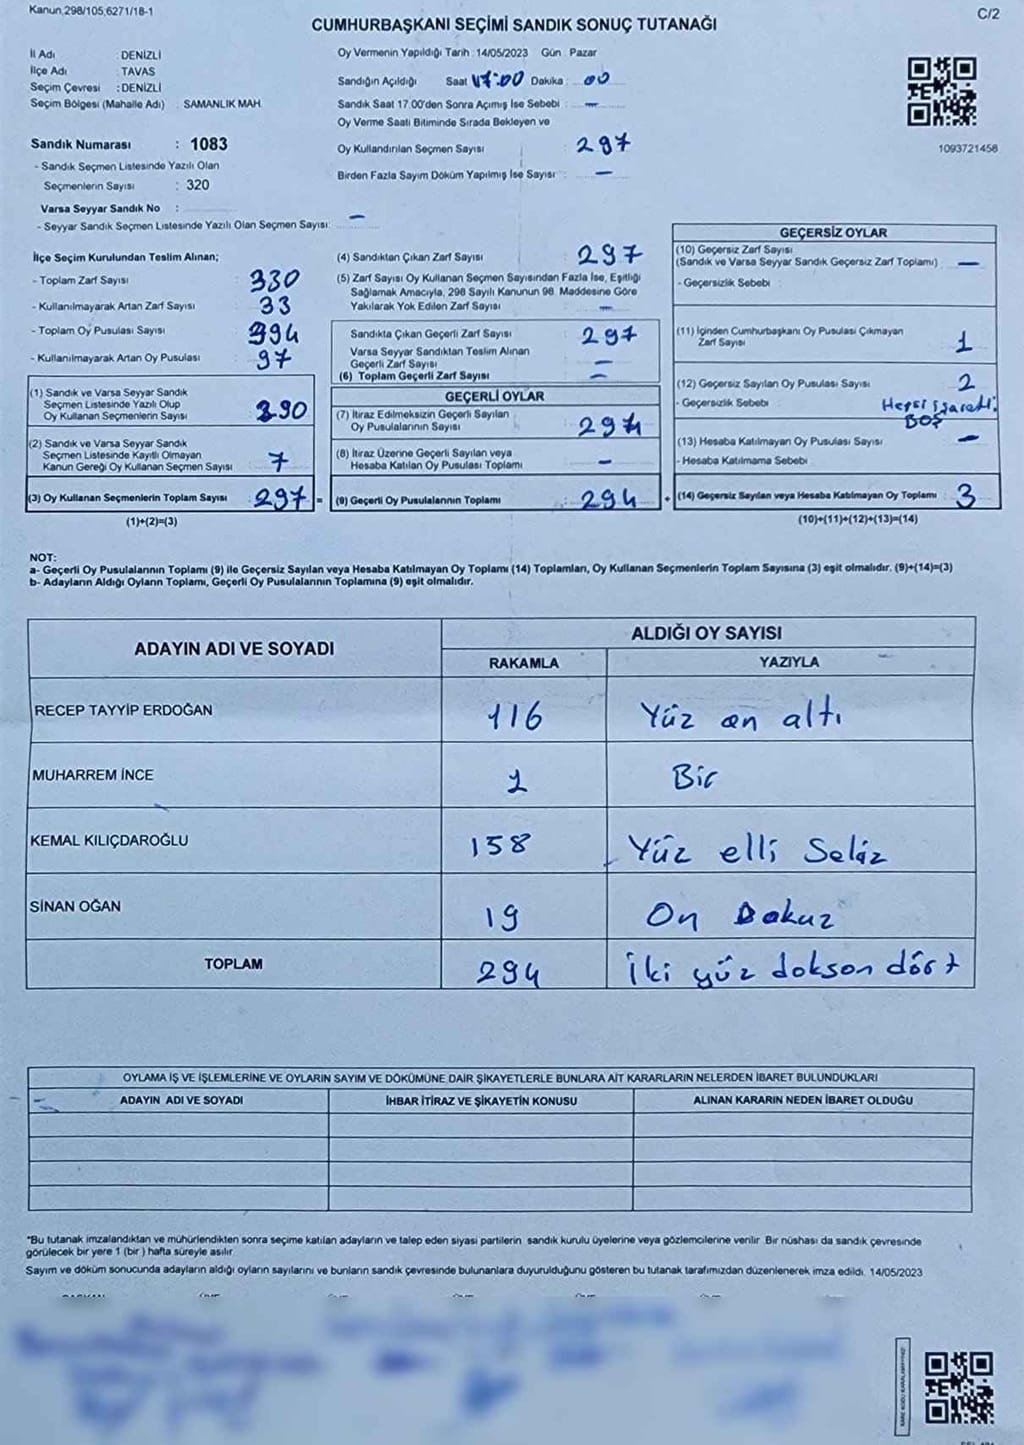 Kanun,298/105,6271/18-1
C/2
CUMHURBAŞKANI SEÇİMİ SANDIK SONUÇ TUTANAĞI
İl Adı : DENİZLİ
İlçe Adı : TAVAS
Seçim Çevresi : DENİZLİ
Seçim Bölgesi (Mahalle Adı) : SAMANLIK MAH.
Oy Vermenin Yapıldığı Tarih : 14/05/2023 Gün : Pazar
Sandığın Açıldığı Saat : 17:00 Dakika : 00
Sandık Saat 17.00'den Sonra Açımış İse Sebebi : —
Oy Verme Saati Bitiminde Sırada Bekleyen ve
Oy Kullandırılan Seçmen Sayısı : 297
Birden Fazla Sayım Döküm Yapılmış İse Sayısı : —
1093721458
Sandık Numarası : 1083
- Sandık Seçmen Listesinde Yazılı Olan
Seçmenlerin Sayısı : 320
Varsa Seyyar Sandık No :
- Seyyar Sandık Seçmen Listesinde Yazılı Olan Seçmen Sayısı: —
İlçe Seçim Kurulundan Teslim Alınan;
- Toplam Zarf Sayısı : 330
- Kullanılmayarak Artan Zarf Sayısı : 33
- Toplam Oy Pusulası Sayısı : 394
- Kullanılmayarak Artan Oy Pusulası : 97
(1) Sandık ve Varsa Seyyar Sandık
Seçmen Listesinde Yazılı Olup
Oy Kullanan Seçmenlerin Sayısı : 290
(2) Sandık ve Varsa Seyyar Sandık
Seçmen Listesinde Kayıtlı Olmayan
Kanun Gereği Oy Kullanan Seçmen Sayısı : 7
(3) Oy Kullanan Seçmenlerin Toplam Sayısı : 297 =
(1)+(2)=(3)
(4) Sandıktan Çıkan Zarf Sayısı : 297
(5) Zarf Sayısı Oy Kullanan Seçmen Sayısından Fazla İse, Eşitliği
Sağlamak Amacıyla, 298 Sayılı Kanunun 98. Maddesine Göre
Yakılarak Yok Edilen Zarf Sayısı : —
Sandıkta Çıkan Geçerli Zarf Sayısı : 297
Varsa Seyyar Sandıktan Teslim Alınan
Geçerli Zarf Sayısı : —
(6) Toplam Geçerli Zarf Sayısı : —
GEÇERLİ OYLAR
(7) İtiraz Edilmeksizin Geçerli Sayılan
Oy Pusulalarının Sayısı : 294
(8) İtiraz Üzerine Geçerli Sayılan veya
Hesaba Katılan Oy Pusulası Toplamı : —
(9) Geçerli Oy Pusulalarının Toplamı : 294 +
GEÇERSİZ OYLAR
(10) Geçersiz Zarf Sayısı
(Sandık ve Varsa Seyyar Sandık Geçersiz Zarf Toplamı) : —
- Geçersizlik Sebebi :
(11) İçinden Cumhurbaşkanı Oy Pusulası Çıkmayan
Zarf Sayısı : 1
(12) Geçersiz Sayılan Oy Pusulası Sayısı : 2
- Geçersizlik Sebebi : Hepsi işaretli.
BOŞ
(13) Hesaba Katılmayan Oy Pusulası Sayısı : —
- Hesaba Katılmama Sebebi :
(14) Geçersiz Sayılan veya Hesaba Katılmayan Oy Toplamı : 3
(10)+(11)+(12)+(13)=(14)
NOT:
a- Geçerli Oy Pusulalarının Toplamı (9) ile Geçersiz Sayılan veya Hesaba Katılmayan Oy Toplamı (14) Toplamları, Oy Kullanan Seçmenlerin Toplam Sayısına (3) eşit olmalıdır. (9)+(14)=(3)
b- Adayların Aldığı Oyların Toplamı, Geçerli Oy Pusulalarının Toplamına (9) eşit olmalıdır.
ADAYIN ADI VE SOYADI
ALDIĞI OY SAYISI
RAKAMLA YAZIYLA
RECEP TAYYİP ERDOĞAN 116 Yüz on altı
MUHARREM İNCE 1 Bir
KEMAL KILIÇDAROĞLU 158 Yüz elli Sekiz
SİNAN OĞAN 19 On Dokuz
TOPLAM 294 İki yüz dokson dört
OYLAMA İŞ VE İŞLEMLERİNE VE OYLARIN SAYIM VE DÖKÜMÜNE DAİR ŞİKAYETLERLE BUNLARA AİT KARARLARIN NELERDEN İBARET BULUNDUKLARI
ADAYIN ADI VE SOYADI İHBAR İTİRAZ VE ŞİKAYETİN KONUSU ALINAN KARARIN NEDEN İBARET OLDUĞU
*Bu tutanak imzalandıktan ve mühürlendikten sonra seçime katılan adayların ve talep eden siyasi partilerin sandık kurulu üyelerine veya gözlemcilerine verilir. Bir nüshası da sandık çevresinde
görülecek bir yere 1 (bir ) hafta süreyle asılır.
Sayım ve döküm sonucunda adayların aldığı oyların sayılarını ve bunların sandık çevresinde bulunanlara duyurulduğunu gösteren bu tutanak tarafımızdan düzenlenerek imza edildi. 14/05/2023